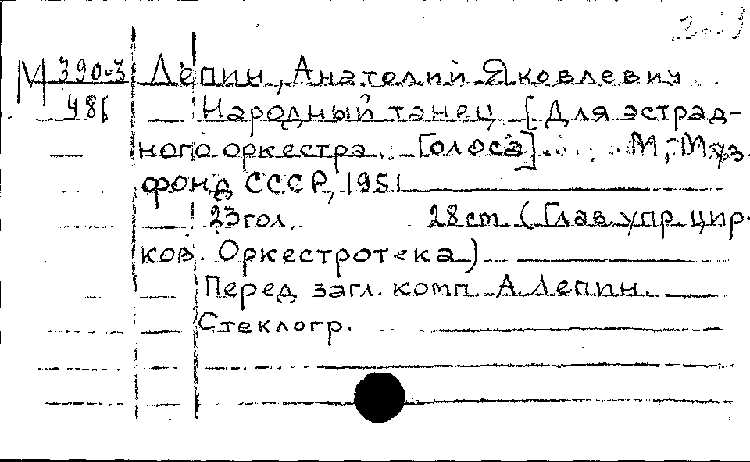 М 390-3 Лепин, Анатолий Яковлевич
48 Народный танец [Для эстрад-
ного оркестра. Голоса]. М., Муз
фонд СССР, 1951
23 гол. 28 cm. (Глав. упр. цир-
ков. Оркестротека)
Перед загл. комп. А. Лепин.
Стеклогр.